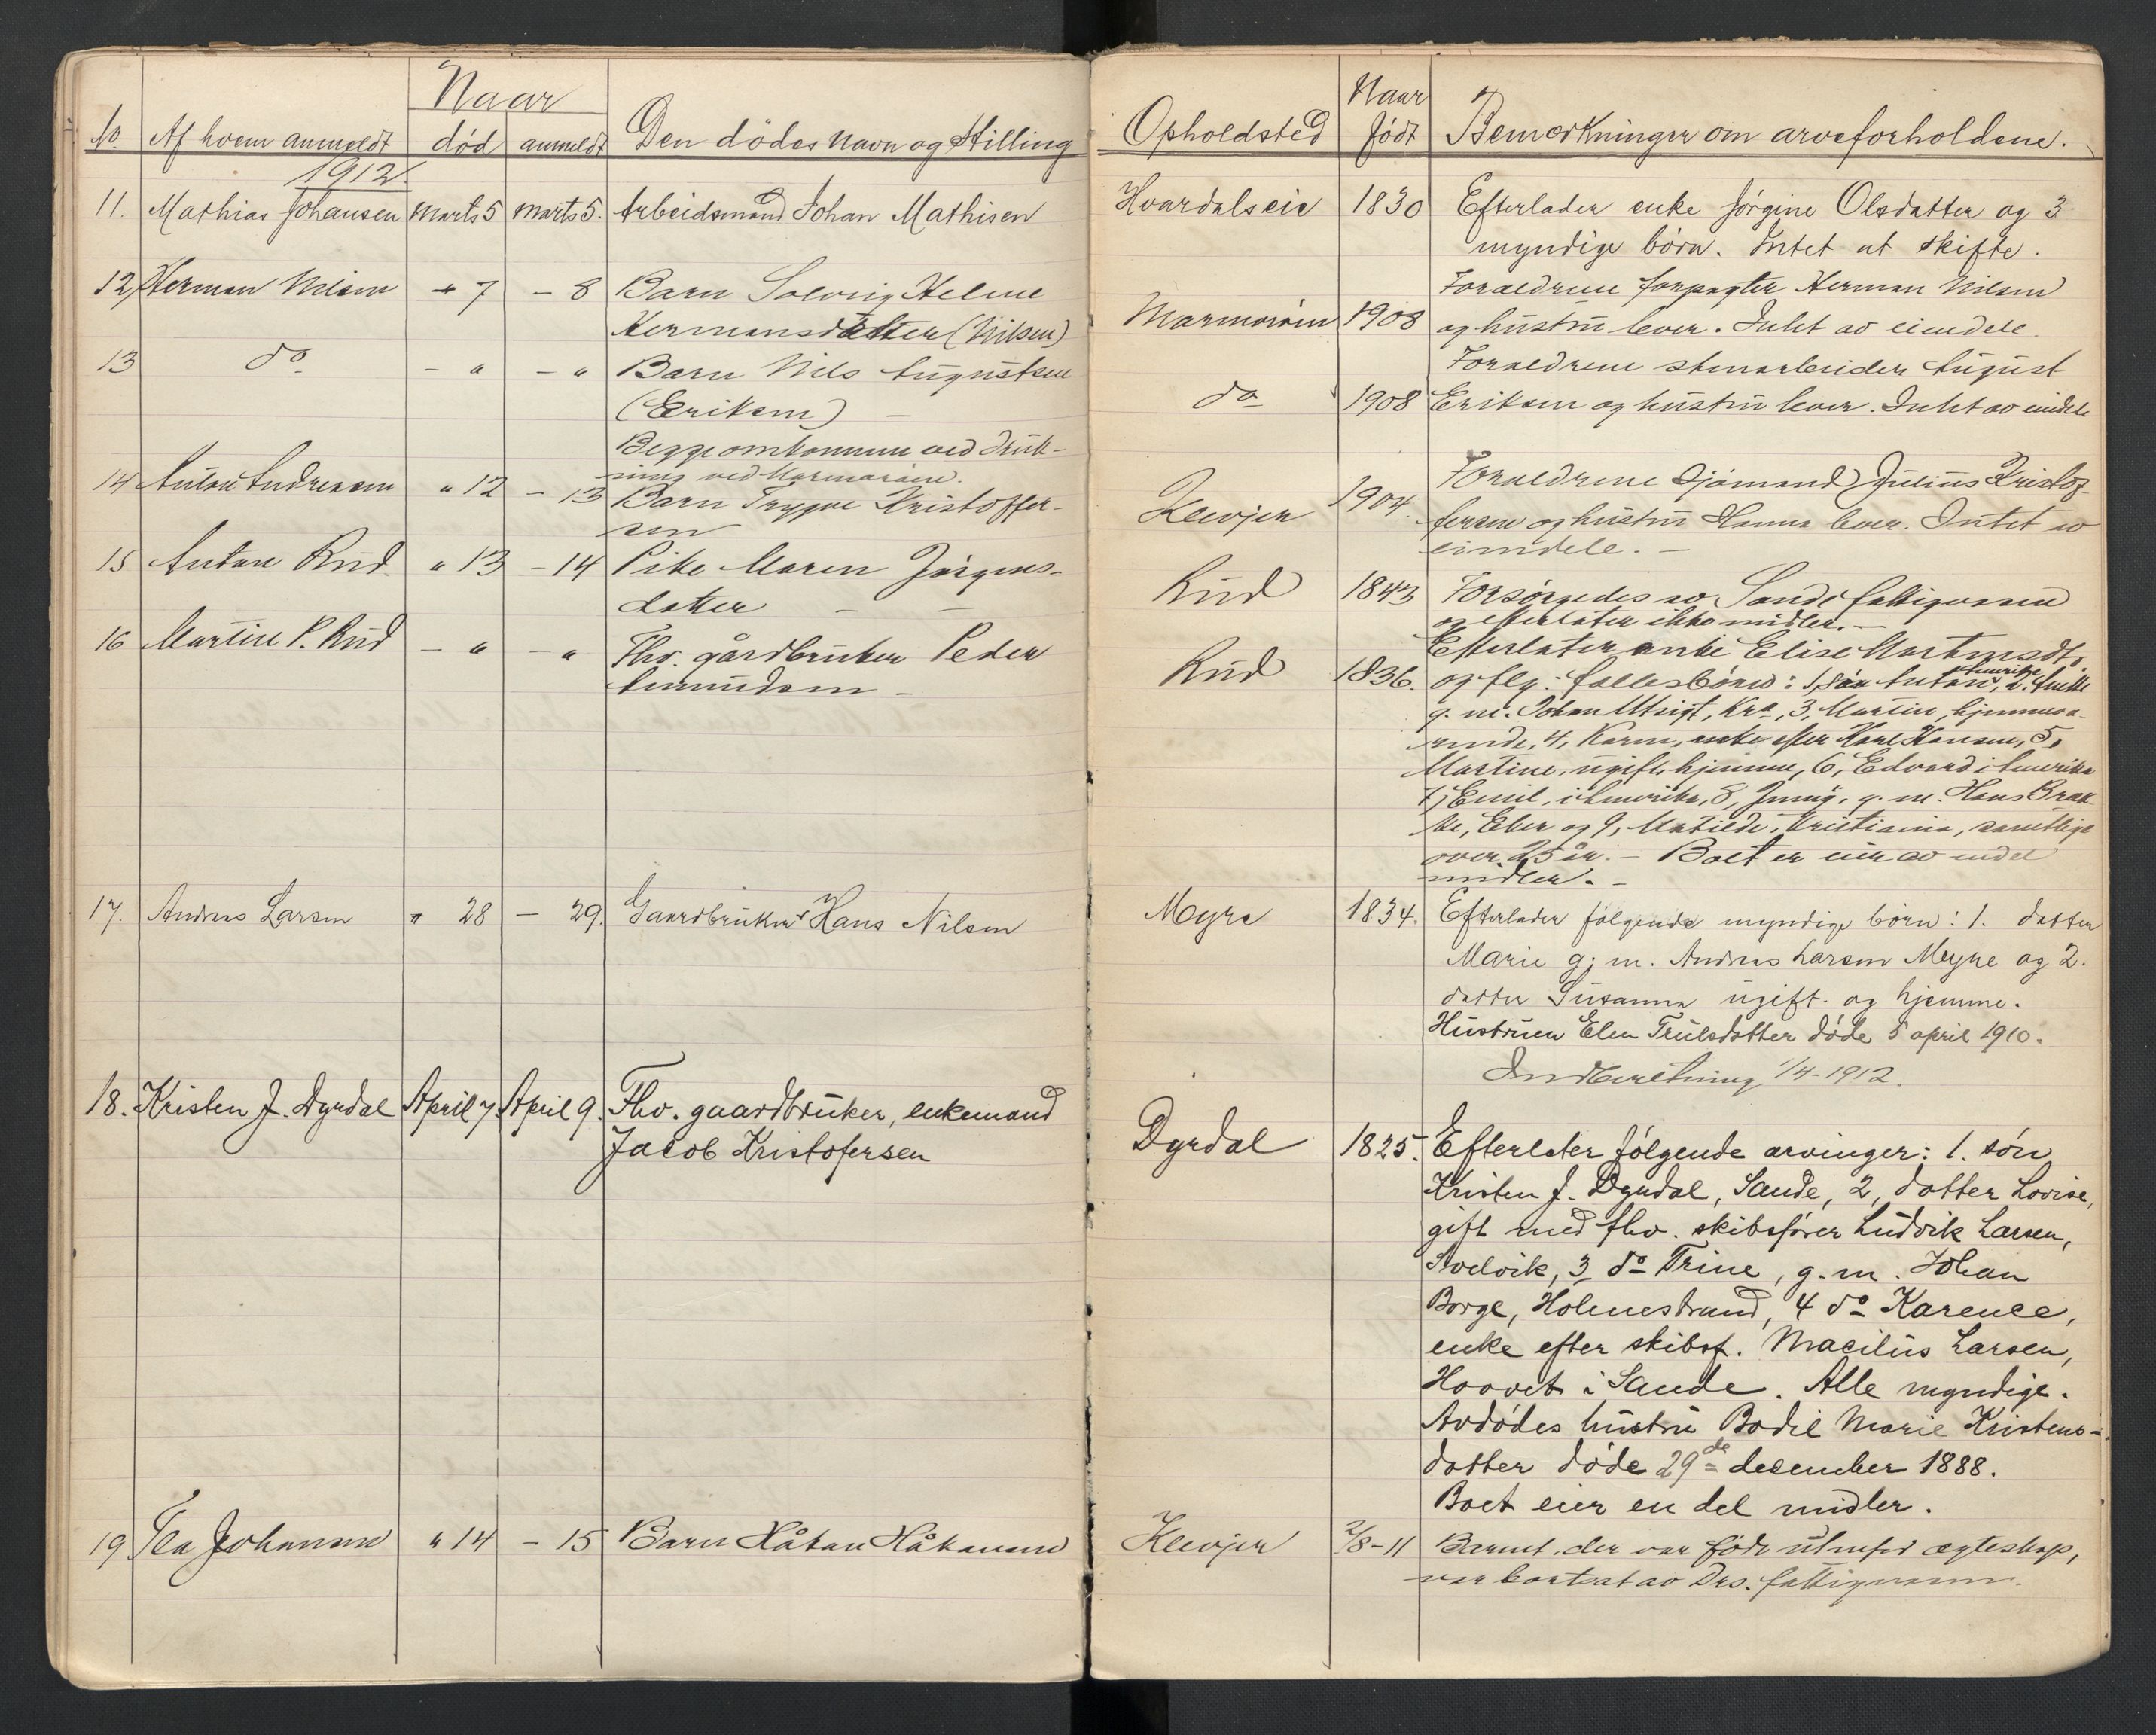 Naar
No. Af hvem anmeldt død anmeldt Den dødes navn og Stilling
1912.
11. Mathias Johansen Marts 5 Marts 5. Arbeidsmand Johan Mathisen
12, Herman Nilsen " 7 – 8 Barn Solveig Helene
Hermansdatter (Nilsen)
13 do – " – " Barn Nils Augustsen
(Eriksen) –
Begge omkommne ved druk-
ning ved Marmoråen.
14 Anton Andreasen " 12 – 13 Barn Trygve Kristoffer-
sen
15 Anton Rud " 13 – 14 Pike Maren Jørgens-
datter – –
16 Martin P. Rud – " – " Fhv. gårdbruker Peder
Amundsen –
17. Andreas Larsen " 28 – 29. Gaardbruker Hans Nilsen
18. Kristen J. Dyrdal April 7. April 9. Fhv. gaardbruker, enkemand
Jacob Kristofersen
19. Tea Johansen " 14 – 15 Barn Håkan Håkansen
Opholdsted Naar født Bemærkninger om arveforholdene.
Hvardalseie 1830 Efterlader enke Jørgine Olsdatter og 3
myndige børn. Intet at skifte.
Foraeldrene forpagter Herman Nilsen
Marmoråen 1908 og hustru lever. Intet av eiendele.
Foraeldrene stenarbeider August
do 1908 Eriksen og hustru lever. Intet av eiendele
Foraeldrene Sjømand Julius Kristof-
Klevjer 1904. fersen og hustru Hanna lever. Intet av
eiendele. –
Rud 1843 Forsørgedes av Sande fattigvæsen
og efterlater ikke midler. –
Efterlater enke Elise Martinsdt.
Rud 1836. og flg. fællesbørn: 1, søn Anton, Amerika, 2.
g. m. Johan Utsigt, Kra, 3, Martin, hjemmevæ-
rende, 4, Karen, enke efter Karl Hansen, 5,
Martine, ugift, hjemme, 6, Edvard i Amerika
7, Emil, i Amerika, 8, Jenny, g. m. Hans Brek-
ke, Eker og 9, Matilde, Kristiania, samtlige
over 25 år. – Boet er eier av endel
midler. –
Myre 1834. Efterlader følgende myndige børn: 1. datter
Marie g. m. Andreas Larsen Meyre og 2.
datter Susanna ugift og hjemme.
Hustruen Elen Trulsdatter døde 5 april 1910.
Indberetning 1/4-1912.
Dyrdal 1825. Efterlater følgende arvinger: 1. søn
Kristen J. Dyrdal, Sande, 2, datter Lovise,
gift med fhv. skibsfører Ludvik Larsen,
Svelvik, 3, do Trine, g. m. Johan
Borge, Holmestrand, 4 do Karence,
enke efter skibsf. Macilius Larsen,
Hoovet i Sande. Alle myndige.
Avdødes hustru Bodil Marie Kristens-
datter døde 29de december 1888.
Boet eier en del midler.
Klevjer 2/8-11 Barnet, der var født utenfor ægteskap,
var bortsat av Drs. fattigvæsen.